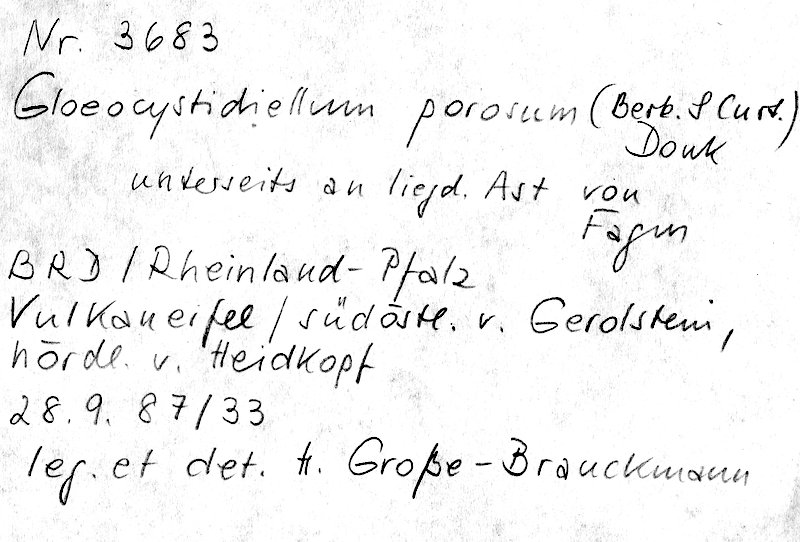 Nr. 3683
Gloeocystidiellum porosum (Berk. & Curt.)
Donk
unterseits an liegd. Ast von
Fagus
BRD / Rheinland-Pfalz
Vulkaneifel / südöstl. v. Gerolstein,
nördl. v. Heidkopf
28.9.87/33
leg. et det. H. Große-Brauckmann